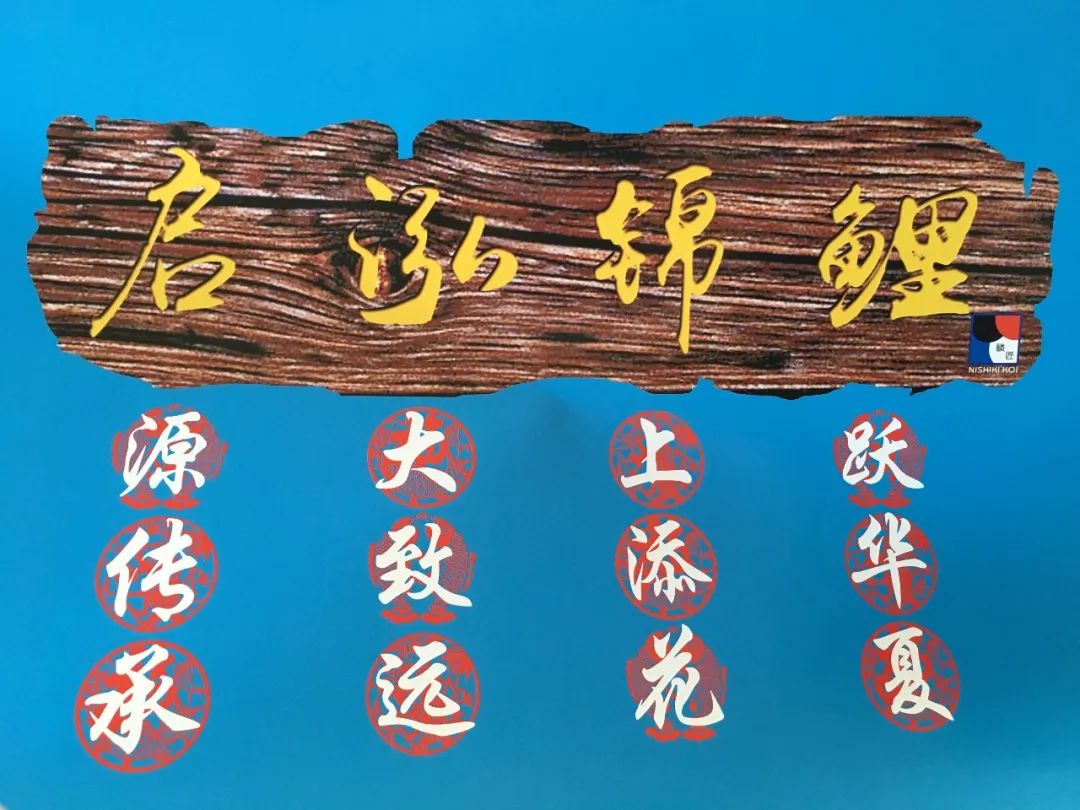 启泓锦鲤
NISHIKI KOI
源传承
大致远
上添花
跃华夏